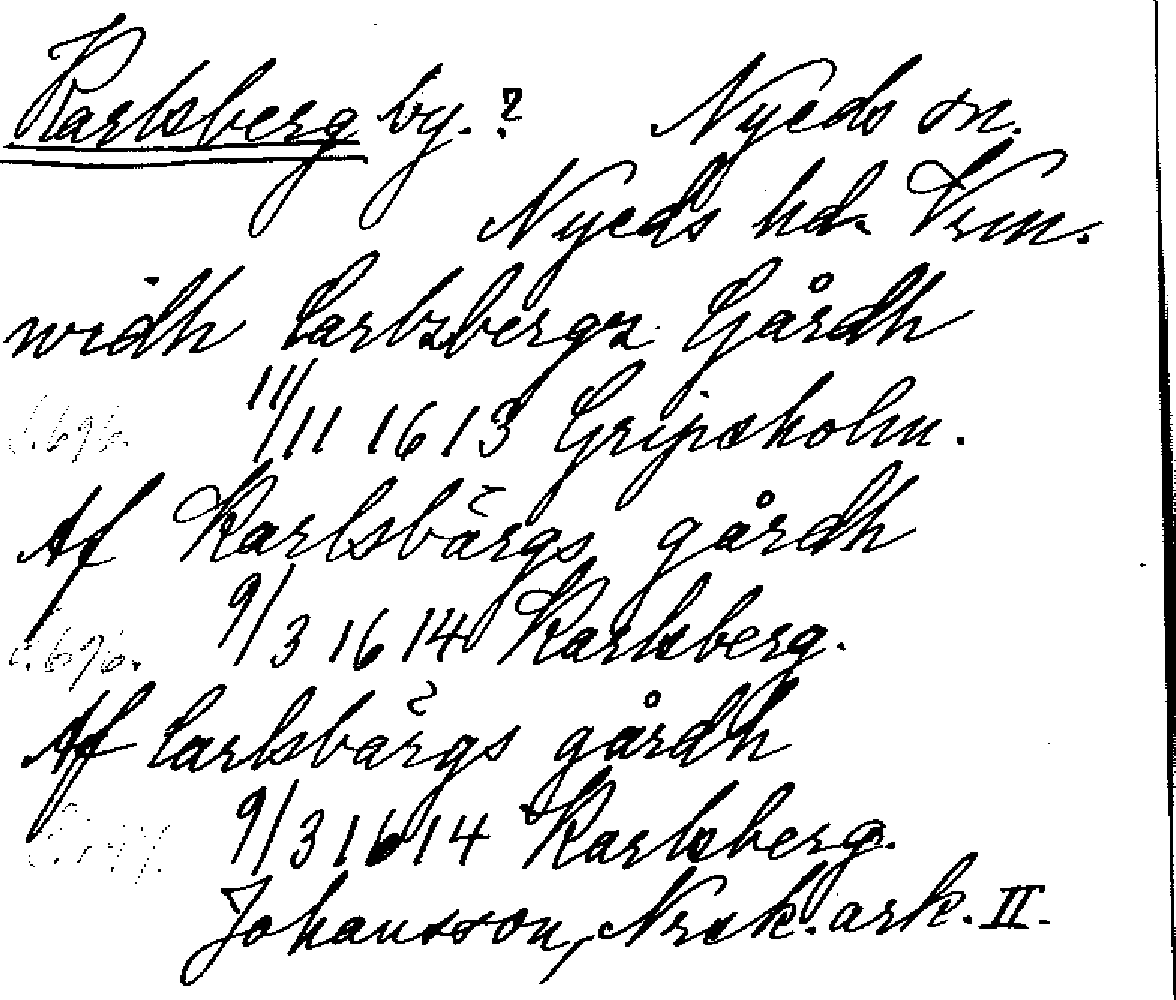 Karlsberg by. ? Nyeds sn.
Nyeds hd. Vrm.
widh Carlzbergz Gårdh
11/11 1613 Gripsholm.
Af Karlsbärgs gårdh
9/3 1614 Karlsberg.
Af Carlsbärgs gårdh
9/3 1614 Karlsberg.
Johansson, Norsk. ark. II.